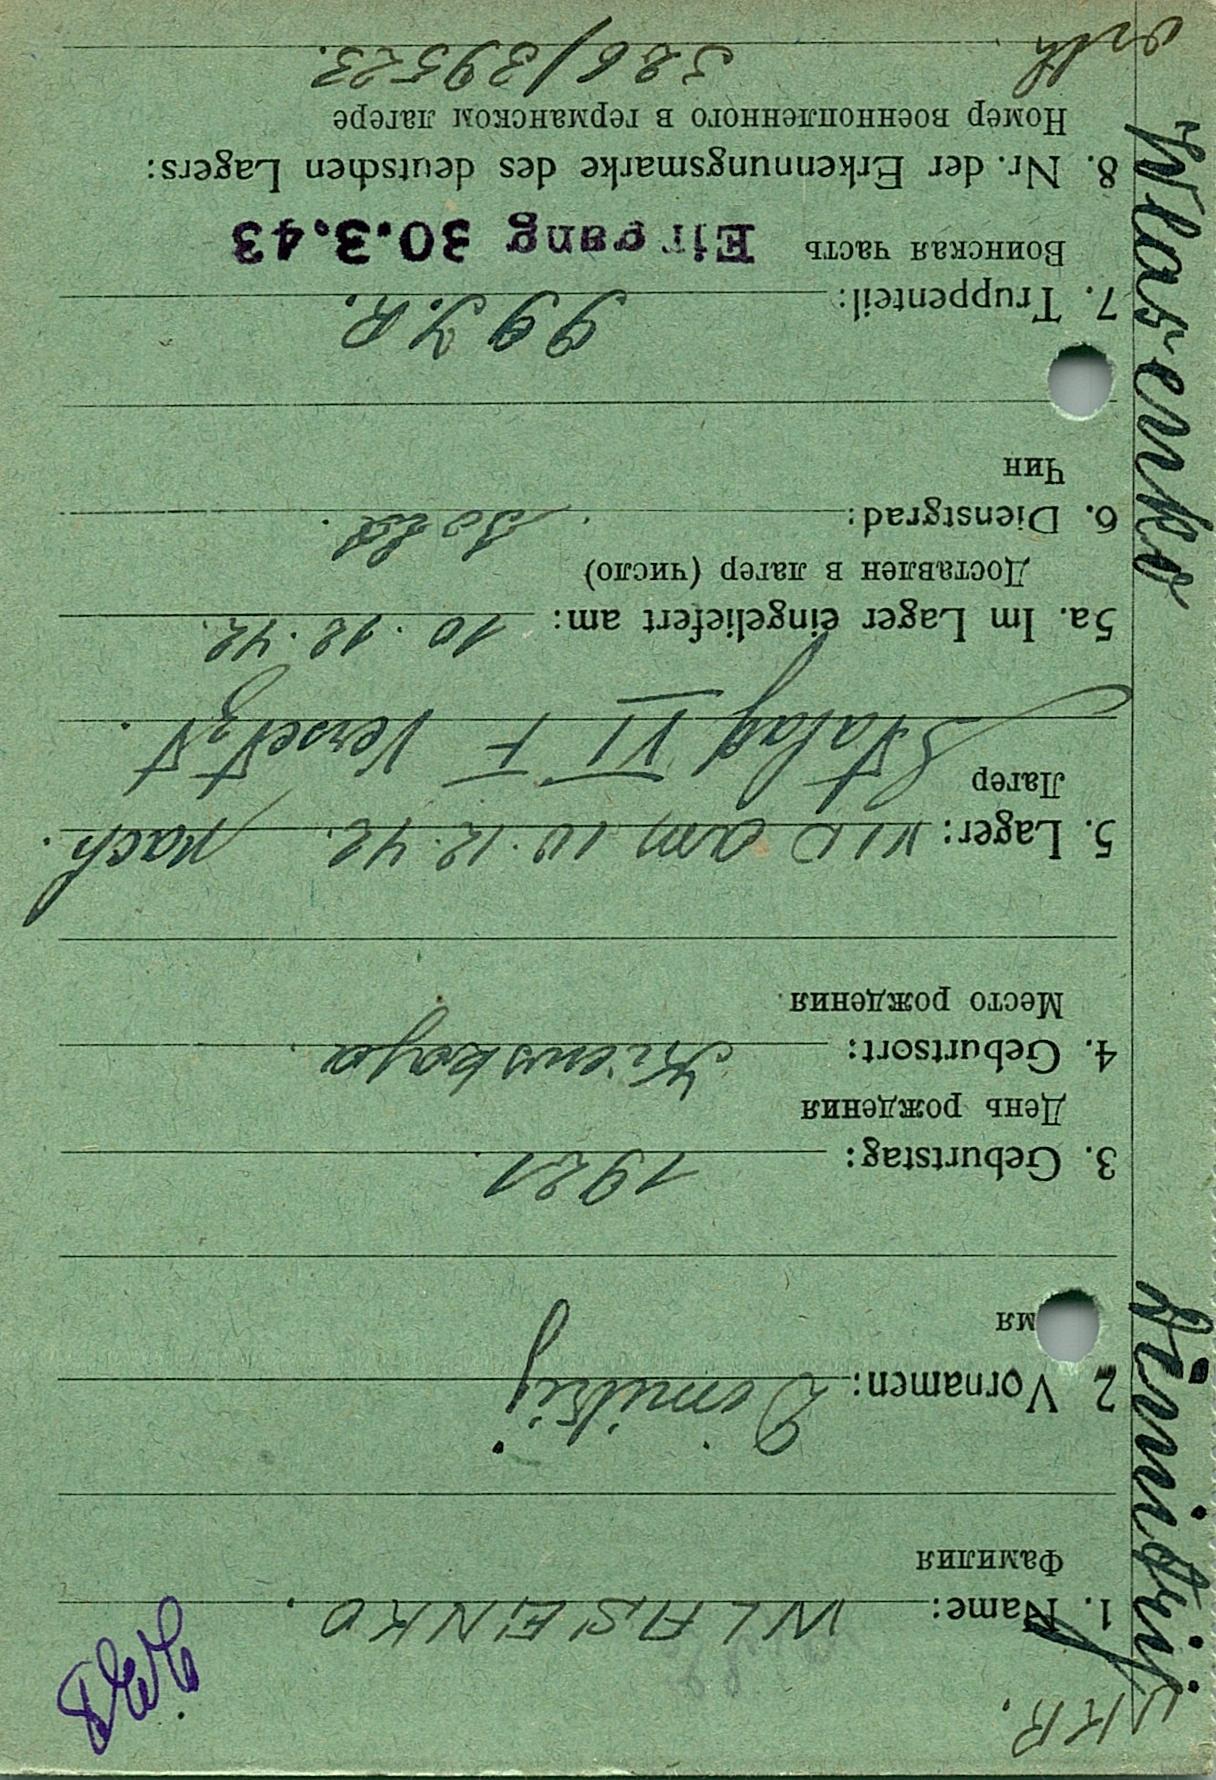 KR.
1. Name: WLASENKO.
Фамилия
2 Vornamen: Dimitrij
мя
3. Geburtstag: 1921
День рождения
4. Geburtsort: Kiewskaja.
Место рождения
5. Lager: VI D am 10.12.42. nach.
Лагер
Stalag VI F Versetzt.
5a. Im Lager eingeliefert am: 10.12.42.
Доставлен в лагер (число)
6. Dienstgrad: Sold.
Чин
7. Truppenteil: 99 J.R.
Воинская часть
Eingang 30.3.43
8. Nr. der Erkennungsmarke des deutschen Lagers:
Номер военнопленного в германском лагере
326/39523.
Wlasenko Dimitrij